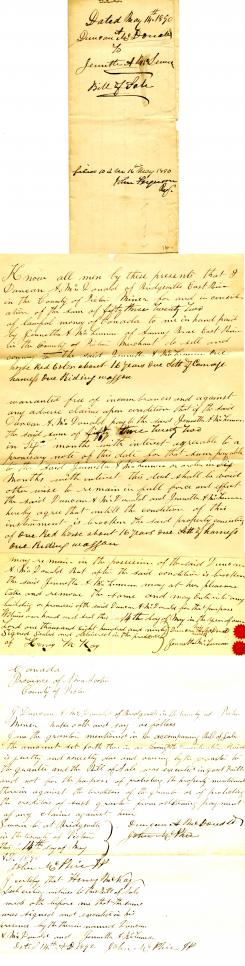 Dated May 14th 1890
Duncan A McDonald
To
Jennetta A McKinnon
Bill of Sale
10 May 1890
John Ferguson
Know all men by these presents that I
Duncan A McDonald of Bridgeville East River
in the County of Pictou Miner for and in consider-
ation of the sum of fifty three Twenty Two
of lawful money of Canada to me in hand paid
by Jennetta A McKinnon of Sunny Brae East River
in the County of Pictou Merchant do sell and
convey the said Jennetta A McKinnon One
Horse Red Color about 16 years One Sett of Carriage
harness One Riding waggon
warranted free of incumbrances and against
any adverse claims upon condition that if the said
Duncan A McDonald the said Jennetta A McKinnon
the said sum of fifty three Twenty Two
in months with interest agreeable to a
promissory note of this date for that sum payable
to the said Jennetta A McKinnon or order in
Months with interest this deed shall be void
other wise to remain in full force and effect
The said Duncan A McDonald and Jennetta A McKinnon
hereby agree that untill the condition of this
instrument is broken the said property consisting
of One Red horse about 16 years One Sett of harness
One Riding waggon
may remain in the possession of the said Duncan
A McDonald that after the said condition is broken
the said Jennetta A McKinnon may at her pleasure
take and remove the same and may enter into any
building or premises of the said Duncan A McDonald for that purpose
Witness our hand and this 14th day of May in the year of our
and one thousand Eight hundred
Signed Sealed and delivered in the presence
of Henry McKay
Jennetta McKinnon
Canada
Province of Nova Scotia
County of Pictou
I Duncan A McDonald of Bridgeville in the County of Pictou
Miner make oath and say as follows
I am the grantor mentioned in the accompanying Bill of Sale
the amount set forth therein as being the consideration thereof
is justly and honestly due and owing by the grantor to
the grantee and the Bill of Sale was executed in good faith
and not for the purpose of protecting the property mentioned
therein against the creditors of the grantor or of preventing
the creditors of such grantor from obtaining payment
of any claims against him
Sworn to at Bridgeville
in the County of Pictou
this 14th day of May
A.D. 1890
Duncan A McDonald
John McPhie
John McPhie JP
I certify that Henry McKay
Subscribing witness to this Bill of Sale
made oath before me that the same
was signed and executed in his
presence by the therein named Duncan
A McDonald and Jennetta A McKinnon
Dated 14th A.D. 1890 John McPhie JP